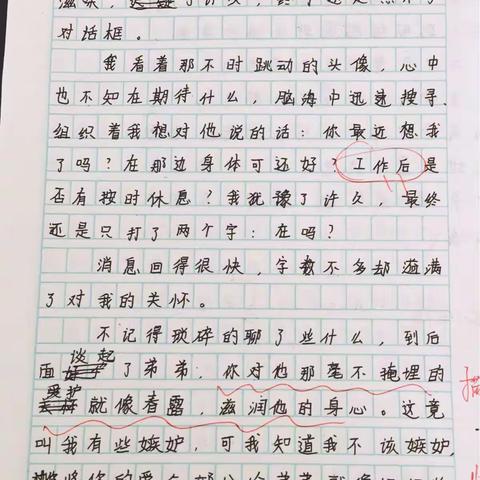 滋味，
对话框。
我看着那不时跳动的头像，心中
也不知在期待什么，脑海中迅速搜寻、
组织着我想对他说的话：你最近想我
了吗？在那边身体可还好？工作后是
否有按时休息？我犹豫了许久，最终
还是只打了两个字：在吗？
消息回得很快，字数不多却溢满
了对我的关怀。
不记得琐碎的聊了些什么，到后
面谈起了弟弟，你对他那毫不掩埋的
爱护就像春露，滋润他的身心。这竟
叫我有些嫉妒，可我知道我不该嫉妒，